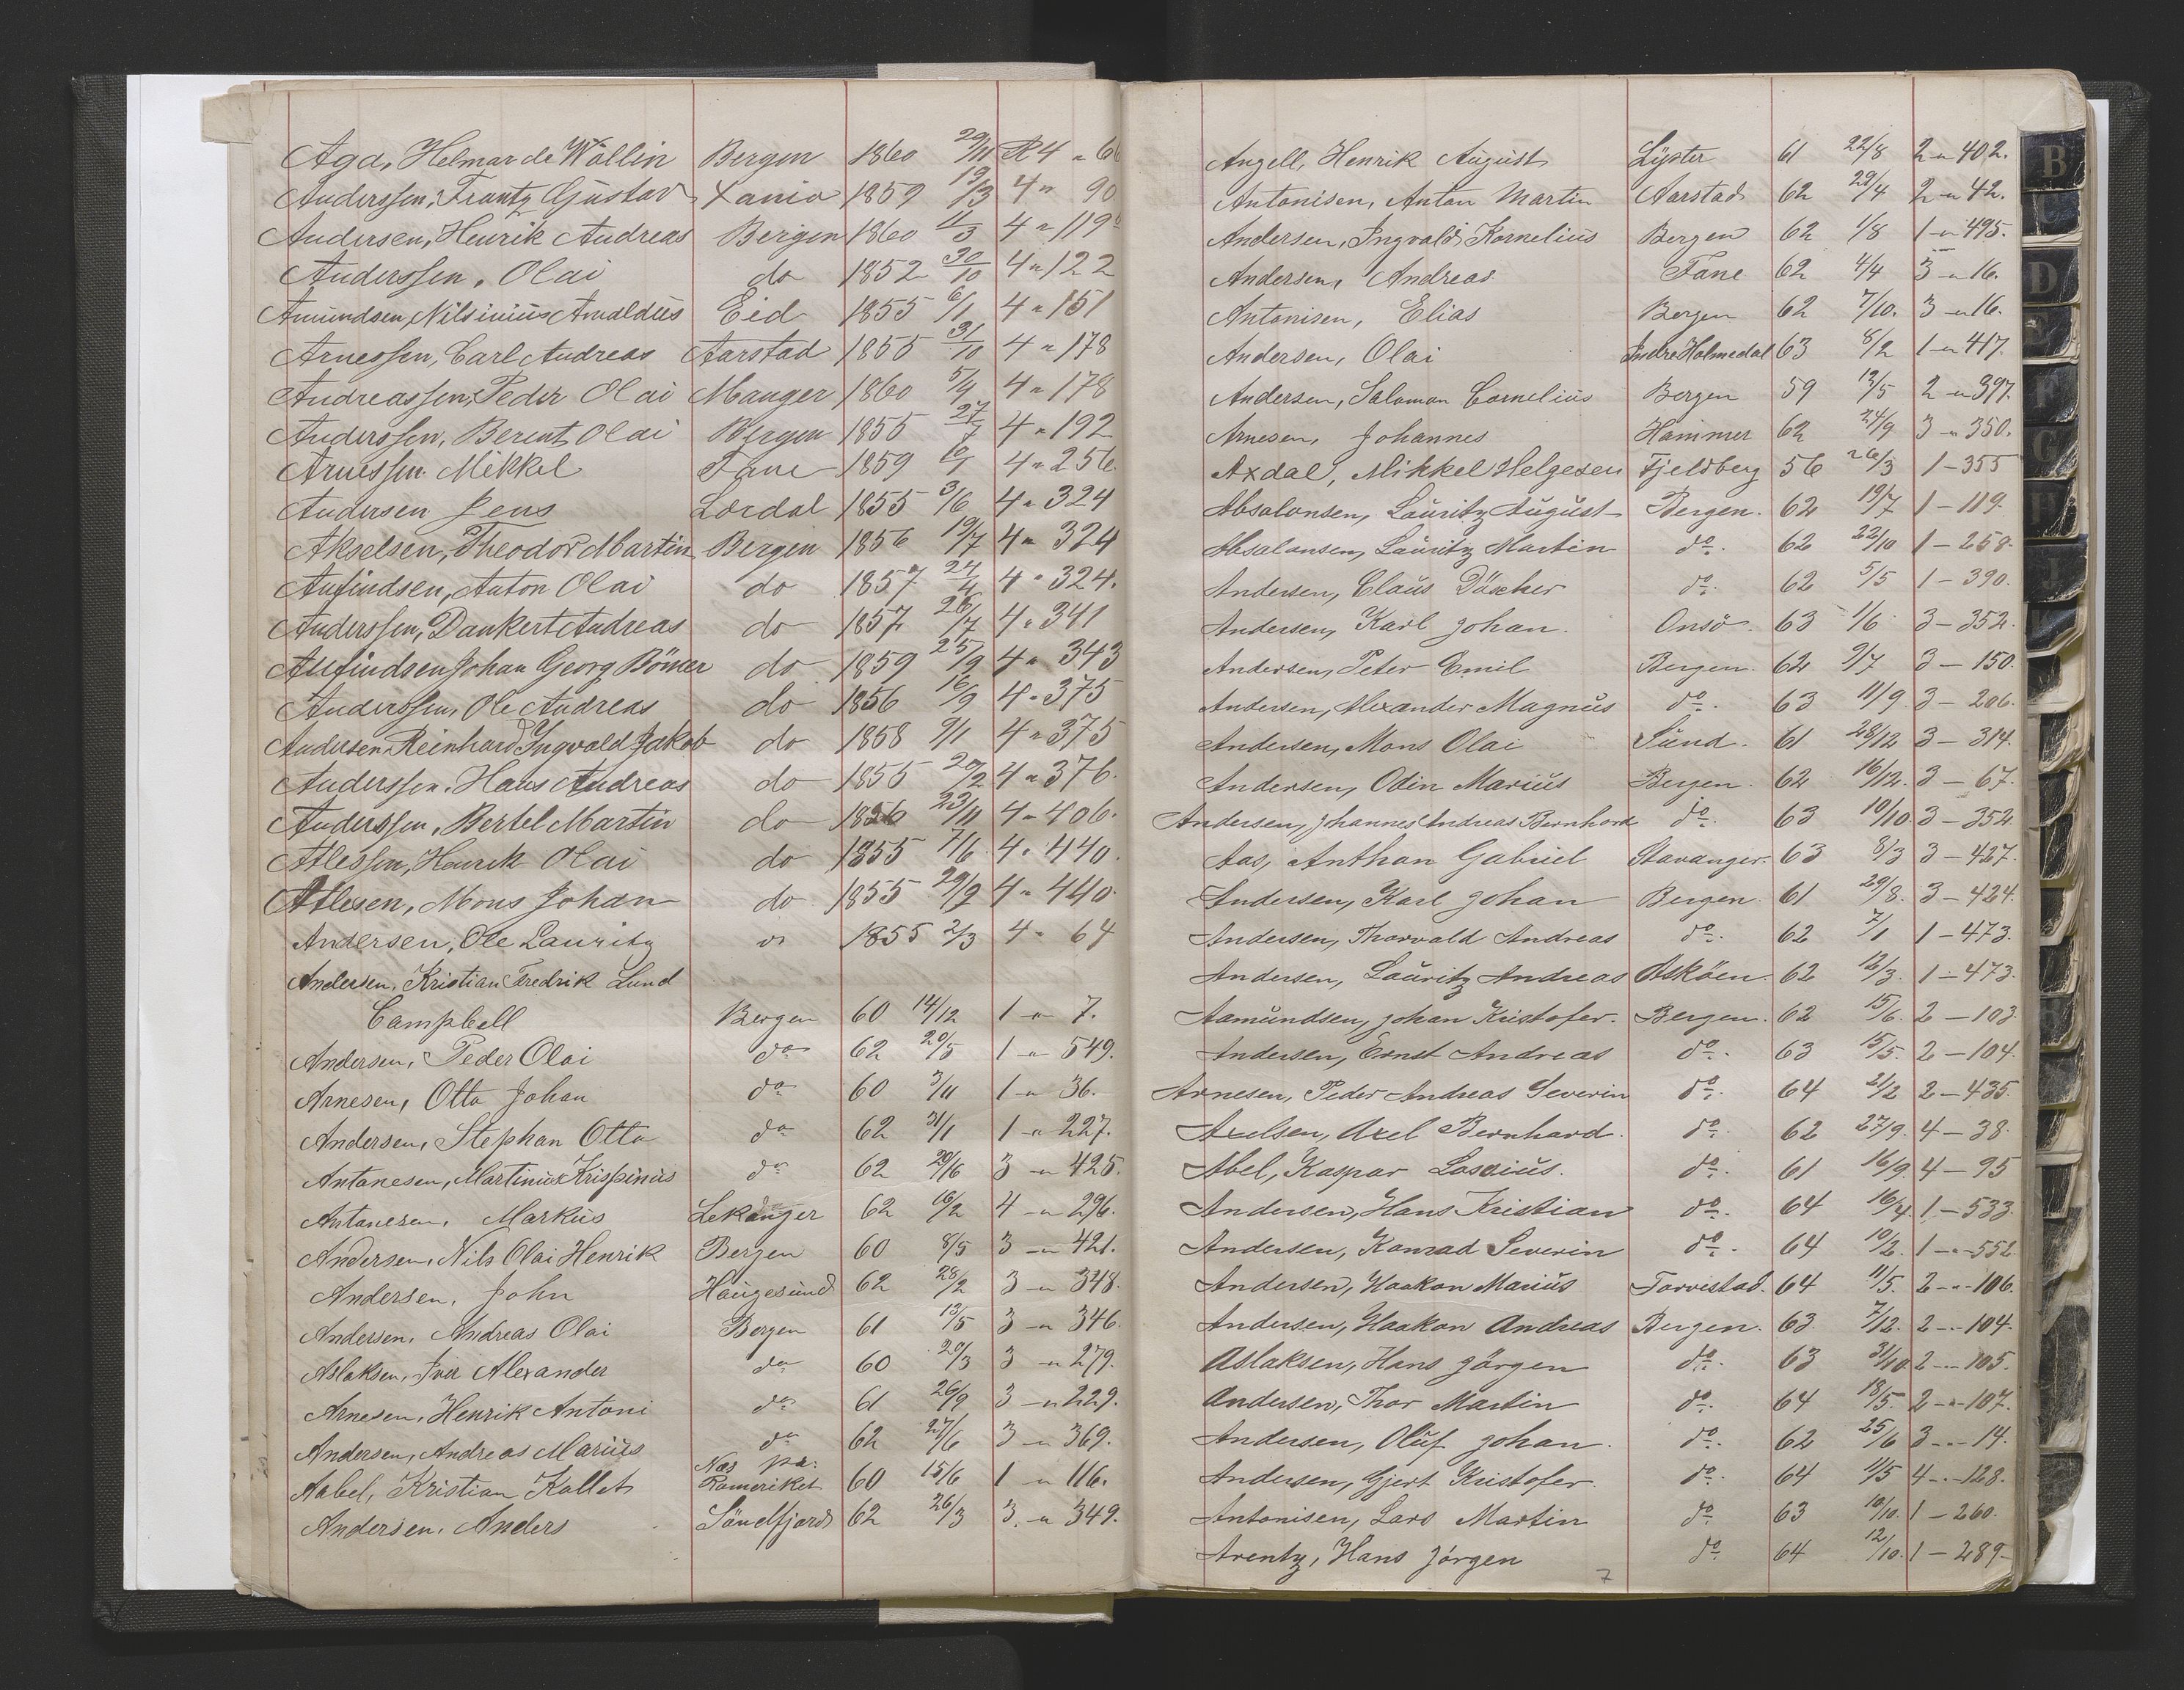 Agd, Helmar de Wallin Bergen 1860 29/11 R 4 " 66
Anderssen, Frantz Gustav Xania 1859 19/3 4 " 90
Andersen, Henrik Andreas Bergen 1860 11/3 4 " 119
Anderssen, Olai do 1852 30/10 4 " 122
Amundsen, Nilsinius Arnoldus Eid 1855 6/1 4 " 151
Arnessen, Carl Andreas Aarstad 1855 31/10 4 " 178
Andreassen, Peder Olai Manger 1860 5/4 4 " 178
Anderssen, Berent Olai Bergen 1855 27/7 4 " 192
Arnessen Mikkel Fane 1859 10/1 4 " 256
Andersen Jens Lördal 1855 3/6 4 " 324
Akselsen, Theodor Martin Bergen 1856 19/7 4 " 324
Anfindsen, Anton Olai do 1857 24/11 4 " 324.
Anderssen, Dankert Andreas do 1857 26/12 4 " 341
Anfindsen Johan Georg Bömer do 1859 25/9 4 " 343
Anderssen, Ole Andreas do 1856 16/9 4 " 375
Andersen Reinhard Yngvald Jakob do 1858 9/1 4 " 375
Anderssen, Hans Andreas do 1855 20/2 4 " 376.
Anderssen, Bertel Martin do 1856 23/11 4 " 406.
Atlessen, Henrik Olai do 1855 7/6 4 " 440.
Atlesen, Mons Johan do 1855 29/9 4 " 440.
Andersen, Ole Lauritz " 1855 2/3 4 " 64
Andersen, Kristian Fredrik Lund
Campbell Bergen 60 14/12 1 " 7.
Andersen, Peder Olai do 62 20/5 1 " 549.
Arnesen, Otto Johan do 60 3/11 1 " 36.
Andersen, Stephan Otto do 62 31/1 1 " 227.
Antonesen, Martinus Krispinus do 62 20/6 3 " 425.
Antonesen, Markus Lekanger 62 16/2 4 " 296.
Andersen, Nils Olai Henrik Bergen 60 8/5 3 " 421.
Andersen, John Haugesund 62 28/2 3 " 348.
Andersen, Andreas Olai Bergen 61 13/5 3 " 346.
Aslaksen, Iver Alexander do 60 20/3 3 " 279.
Arnesen, Henrik Antoni do 61 26/9 3 " 229.
Andersen, Andreas Marius do 62 27/6 3 " 369.
Aabel, Kristian Kollet Nes pa: Romeriket 60 15/6 1 " 116.
Andersen, Anders Söndfjord 62 26/3 3 " 349.
Angell, Henrik August Lyster 61 22/8 2 " 402.
Antonisen, Anton Martin Aarstad 62 29/4 2 " 42.
Andersen, Ingvald Kornelius Bergen 62 1/8 1 " 495.
Andersen, Andreas Fane 62 4/4 3 " 16.
Antonisen, Elias Bergen 62 7/10. 3 " 16.
Andersen, Olai Indre Holmedal 63 8/2 1 " 417.
Andersen, Salomon Cornelius Bergen 59 12/5 2 " 397.
Arnesen, Johannes Hammer 62 24/9 3 " 350.
Axdal, Mikkel Helgesen Fjeldberg 56 26/3 1 - 355
Absalonsen, Lauritz August Bergen. 62 19/7 1 - 119.
Absalonsen, Lauritz Martin do. 62 22/10 1 - 258.
Andersen, Claus Däscher do. 62 5/5 1 - 390.
Andersen, Karl Johan. Onsö. 63 1/6 3 - 352.
Andersen, Peter Emil Bergen. 62 9/7 3 - 150.
Andersen, Alexander Magnus do. 63 11/9 3 - 206.
Andersen, Mons Olai Sund. 61 28/12 3 - 314.
Andersen, Odin Marius Bergen. 62 16/12. 3 - 67.
Andersen, Johannes Andreas Bernhard do. 63 10/10. 3 - 352.
Aas, Anthan Gabriel Stavanger. 63 8/3 3 - 427.
Andersen, Karl Johan Bergen. 61 29/8. 3 - 424.
Andersen, Thorvald Andreas do. 62 7/1 1 - 473.
Andersen, Lauritz Andreas Askøen. 62 12/3. 1 - 473.
Aamundsen, Johan Kristofer. Bergen. 62 15/6. 2 - 103.
Andersen, Ernst Andreas do. 63 15/5. 2 - 104.
Arnesen, Peder Andreas Severin do. 64 2/2 2 - 435.
Axelsen, Axel Bernhard. do. 62 27/9. 4 - 38.
Abel, Kaspar Lossius. do. 61 16/9. 4 - 95
Andersen, Hans Kristian do. 64 16/4. 1 - 533.
Andersen, Konrad Severin do. 64 10/2. 1 - " - 552.
Andersen, Haakon Marius Torvestad. 64 11/5. 2 - " - 106.
Andersen, Haakon Andreas Bergen. 63. 7/12. 2 - " - 104.
Aslaksen, Hans Jörgen do. 63 31/10. 2 - " - 105.
Andersen, Thor Martin do. 64 18/5. 2 - " - 107.
Andersen, Oluf Johan. do. 62 25/6 3 - " - 14.
Andersen, Gjert Kristofer. do. 64 11/5 4 - " - 128.
Antonisen, Lars Martin do. 63 10/10. 1 - 260.
Arentz, Hans Jörgen do. 64 12/10. 1 - 289.
7
B
C
D
E
F
G
H
J
K